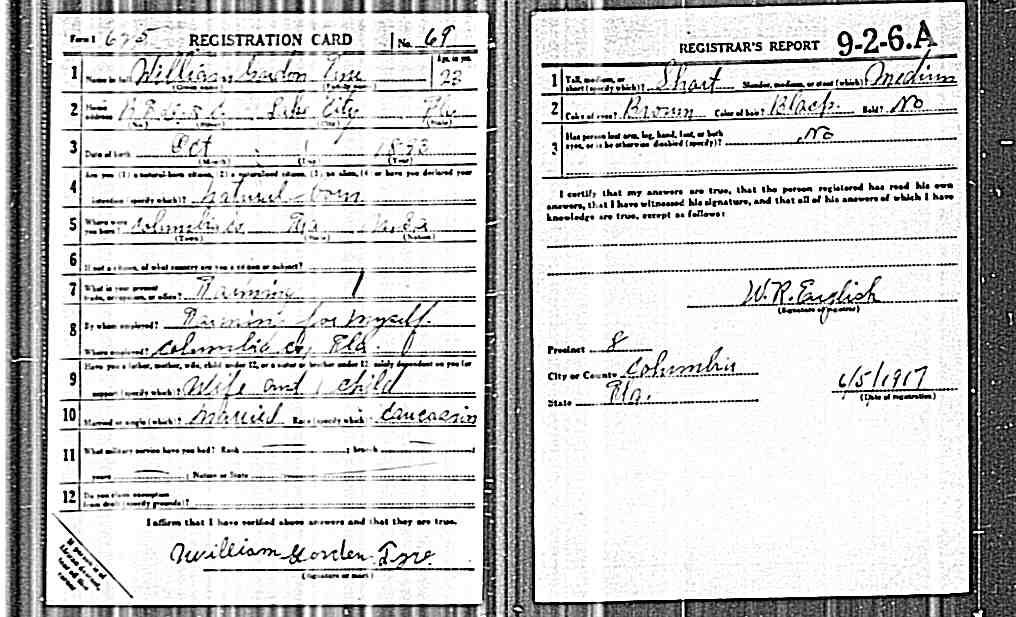 Form 1 625 REGISTRATION CARD No. 69
1 Name in full William Gordon Age, in yrs. 23
(Given name) (Family name)
2 Home address Lake City Fla
(No.) (Street) (City) (State)
3 Date of birth Oct 1893
(Month) (Day) (Year)
4 Are you (1) a natural-born citizen, (2) a naturalized citizen, (3) an alien, (4) or have you declared your
intention (specify which)? natural-born
5 Where were you born? Columbia Co Fla
(Town) (State) (Nation)
6 If not a citizen, of what country are you a citizen or subject?
7 What is your present trade, occupation, or office? Farming
8 By whom employed? Farming for myself.
Where employed? Columbia Fla.
9 Have you a father, mother, wife, child under 12, or a sister or brother under 12, solely dependent on you for
support (specify which)? Wife and 1 child
10 Married or single (which)? married Race (specify which)? Caucasin
11 What military service have you had? Rank ; branch ;
years ; Nation or State
12 Do you claim exemption
from draft (specify grounds)?
I affirm that I have verified above answers and that they are true.
William Gorden
(Signature or mark)
If person is of African descent, tear off this corner
REGISTRAR'S REPORT 9-2-6.A
1 Tall, medium, or short (specify which)? Short Slender, medium, or stout (which)? Medium
2 Color of eyes? Brown Color of hair? Black Bald? No
3 Has person lost arm, leg, hand, foot, or both
eyes, or is he otherwise disabled (specify)? No
I certify that my answers are true, that the person registered has read his own
answers, that I have witnessed his signature, and that all of his answers of which I have
knowledge are true, except as follows:
W.R. English
(Signature of registrar)
Precinct 8
City or County Columbia
State Fla.
6/5/1917
(Date of registration)